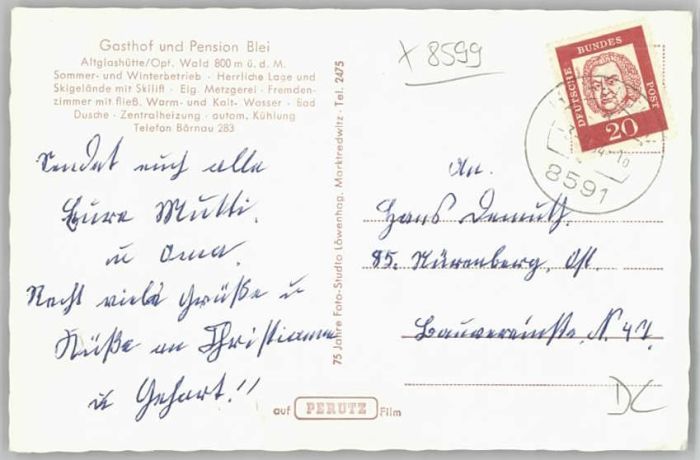 Gasthof und Pension Blei
Altglashütte/Opf. Wald 800 m ü. d. M.
Sommer- und Winterbetrieb · Herrliche Lage und
Skigelände mit Skilift · Eig. Metzgerei · Fremden-
zimmer mit fließ. Warm- und Kalt- Wasser · Bad
Dusche · Zentralheizung · autom. Kühlung
Telefon Bärnau 283
x 8599
DEUTSCHE BUNDES POST
20
8591
Sendet euch alle
Eure Mutti.
u Oma.
Recht viele Grüße u
Küße an Christianne
u Gehart.!!
75 Jahre Foto-Studio Löwenhag, Marktredwitz · Tel. 2475
An.
Hans Demuth.
85. Nürenberg, Ost.
Bauvereinstr, N. 47.
auf PERUTZ Film
DC